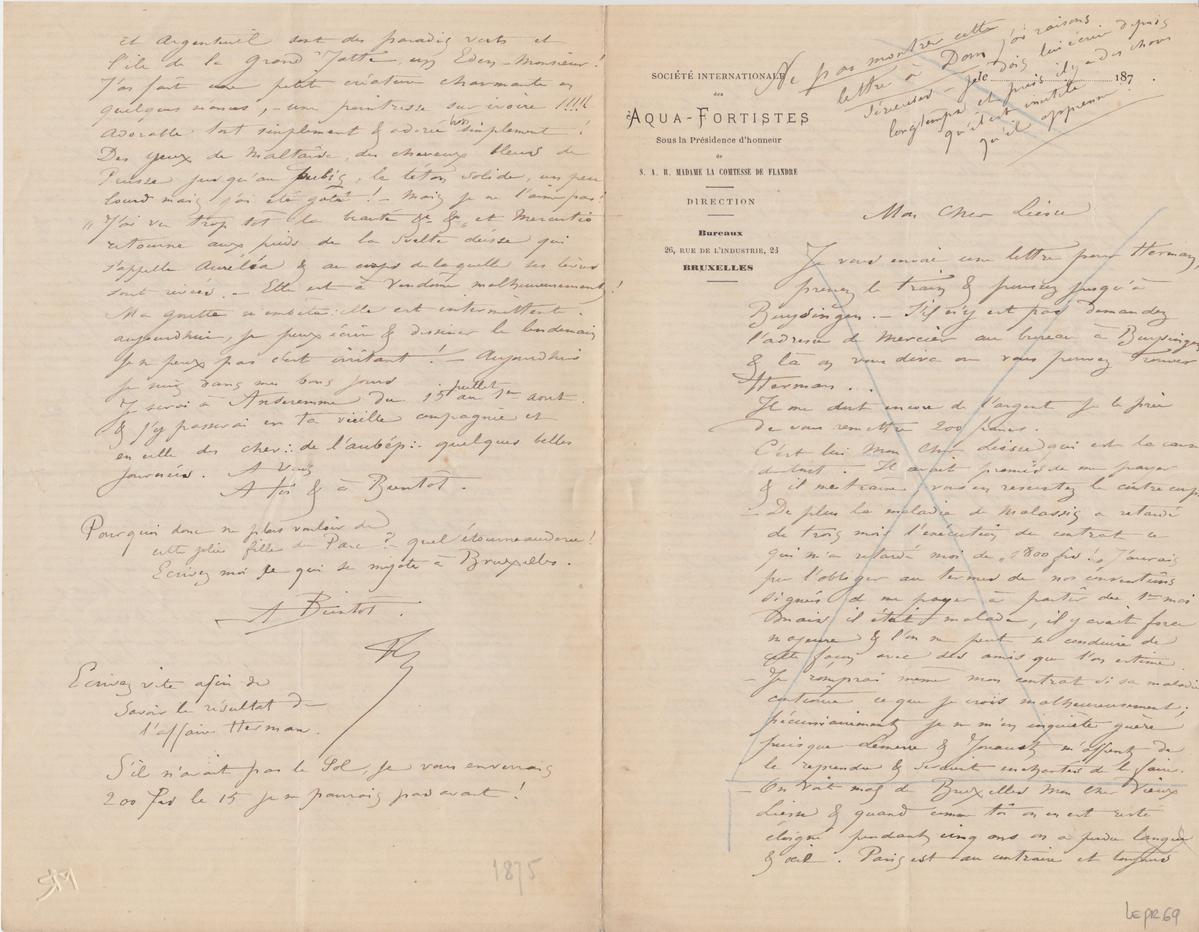 Ne pas montrer cette
lettre à Dom j'ai raisons
sérieuses - je dois lui écrire depuis
longtemps et puis il y a des choses
qu'il est inutile
qu'il apprenne !
SOCIÉTÉ INTERNATIONALE
DES
AQUA-FORTISTES
Sous la Présidence d'honneur
de
S. A. R. MADAME LA COMTESSE DE FLANDRE
DIRECTION
Bureaux
26, RUE DE L'INDUSTRIE, 23
BRUXELLES
le 187 .
Mon Cher Liesse
Je vous envoie une lettre pour Herman,
prenez le train & poussez jusqu'à
Buysingen. - S'il n'y est pas demandez
l'adresse de Mercier au bureau à Buysingen
& là on vous dira où vous pouvez trouver
Herman . .
Il me doit encore de l'argent je le prie
de vous remettre 200 francs.
C'est lui Mon Cher Liesse qui est la cause
de tout . Il avait promis de me payer
& il me traîne, vous en ressentez le contre coup
- De plus la maladie de Malassis a retardé
de trois mois l'exécution du contrat ce
qui m'a retardé moi de 1800 frs ! J'aurais
pu l'obliger au termes de nos conventions
signées de me payer à partir du 1er mai
mais il était malade, il y avait force
majeure & l'on ne peut se conduire de
cette façon avec des amis que l'on estime.
- Je romprai même mon contrat si sa maladie
continue ce que je crois malheureusement ;
pécuniairement je ne m'en inquiète guère
puisque Lemerre & Jouaust m'offrent de
le reprendre & seraient enchantés de le faire.
- On voit mal de Bruxelles Mon Cher Vieux
Liesse & quand comme toi on en est resté
éloigné pendant cinq ans on a perdu langue
& œil . Paris est au contraire et toujours
et Argenteuil sont des paradis verts et
l'île de la Grand Jatte, un Eden - Monsieur !
J'ai fait une petite créature charmante en
quelques séances, - une peintresse sur ivoire !!!!!
Adorable tout simplement & adorée non simplement !
Des yeux de Maltaise, des cheveux bleus de
Prusse jusqu'au pubis, le téton solide, un peu
lourd mais j'ai été gâté ! - Mais je ne l'aime pas !
„ J'ai vu trop tôt la beauté &c &c „ et Mercutio
retourne aux pieds de la svelte déesse qui
s'appelle Aurélia & au corps de laquelle ses lèvres
sont rivées. - Elle est à Vendôme malheureusement !
Ma goutte m'embête elle est intermittente.
aujourd'hui, je peux écrire & dessiner le lendemain
je ne peux pas c'est irritant ! - Aujourd'hui
je suis dans mes bons jours
Je serai à Anseremme du 15 juillet au 1er août.
& j'y passerai en ta vieille compagnie et
en celle des cher.: de l'aubépi.. quelques belles
journées. A vous
A toi & à Bientôt .
Pourquoi donc ne plus vouloir de
cette jolie fille du Parc ? quel étourneauderie !
Ecrivez moi ce qui se mijote à Bruxelles.
A Bientôt .
Ecrivez vite afin de
savoir le résultat de
l'affaire Herman.
S'il n'avait pas le Sol, je vous enverrais
200 frs le 15 je ne pourrais pas avant !
1875
LEpr69